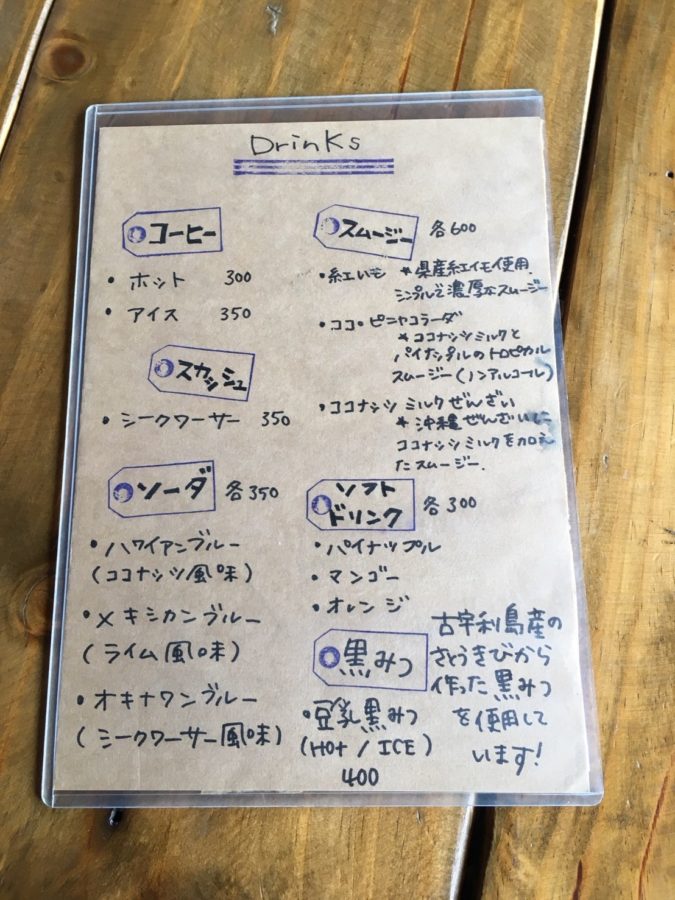 Drinks
コーヒー
・ホット 300
・アイス 350
スカッシュ
・シークワーサー 350
ソーダ 各350
・ハワイアンブルー
(ココナッツ風味)
・メキシカンブルー
(ライム風味)
・オキナワンブルー
(シークワーサー風味)
スムージー 各600
・紅いも *県産紅イモ使用
シンプルで濃厚なスムージー
・ココ・ピニャコラーダ
*ココナッツミルクと
パイナップルのトロピカル
スムージー(ノンアルコール)
・ココナッツミルクぜんざい
*沖縄ぜんざいに
ココナッツミルクを加え
たスムージー.
ソフト
ドリンク 各300
・パイナップル
・マンゴー
・オレンジ
黒みつ
・豆乳黒みつ
(HOt / ICE)
400
古宇利島産の
さとうきびから
作った黒みつ
を使用して
います!